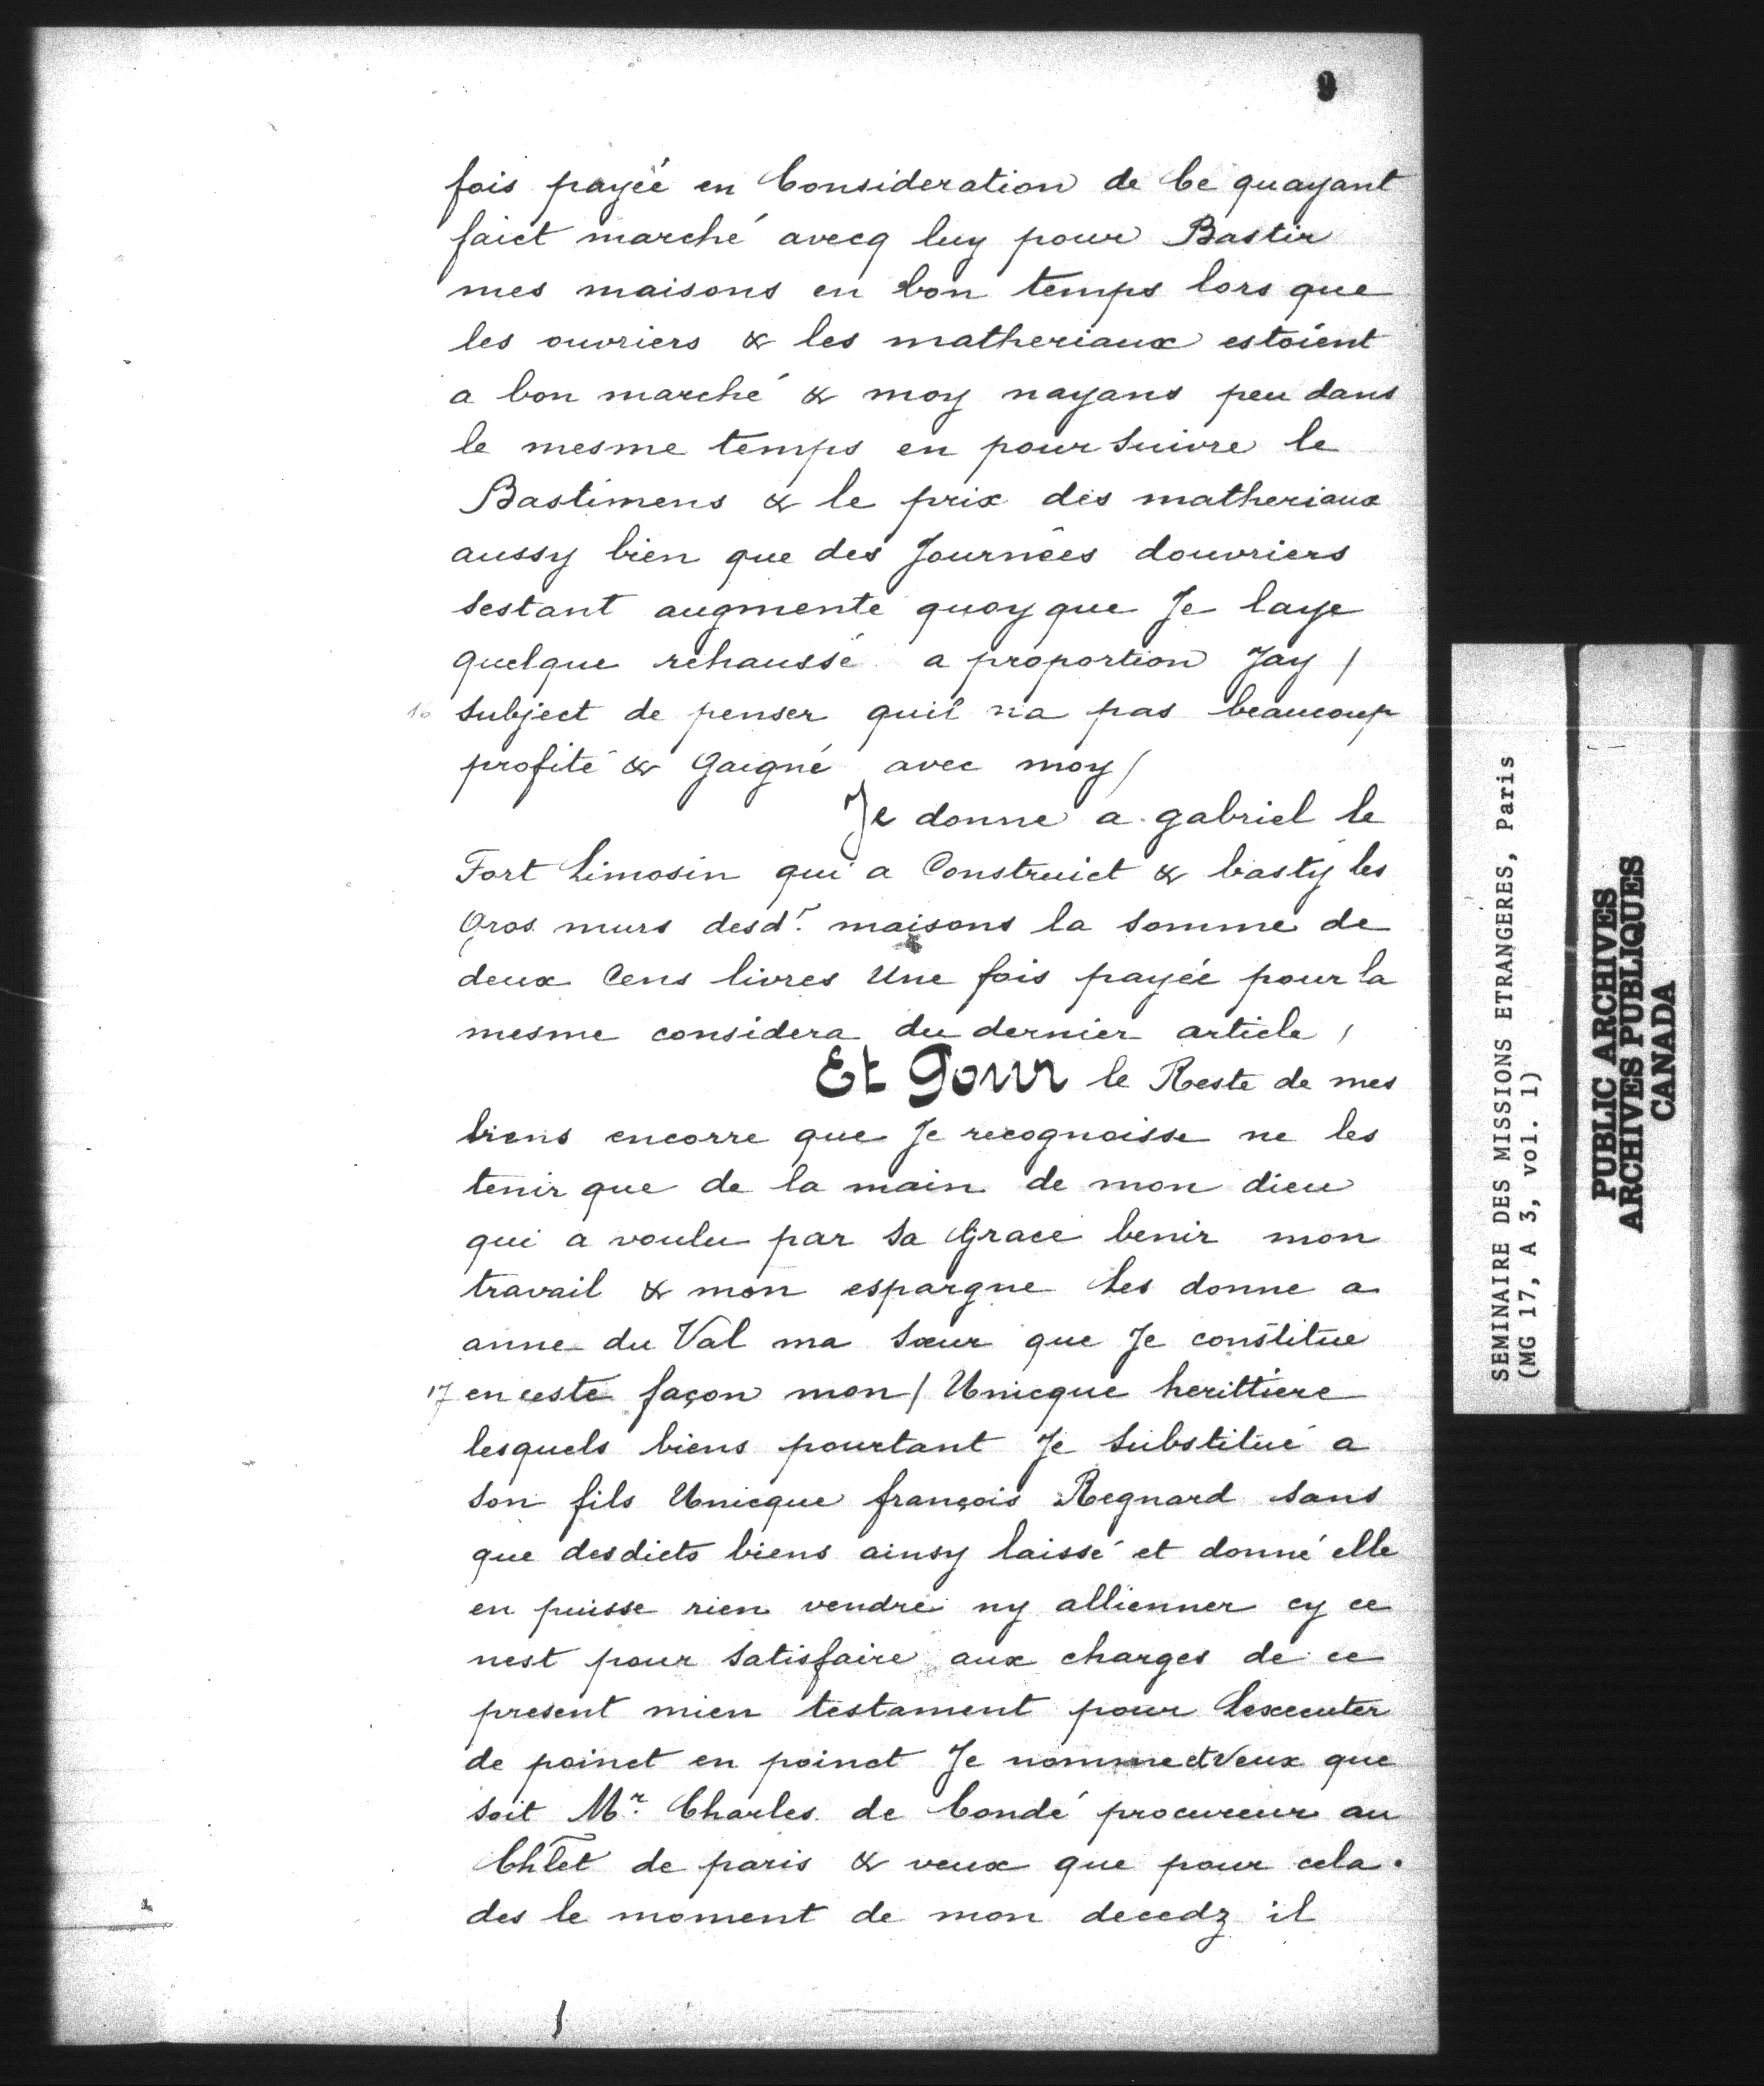 9
fois payéé en Consideration de Ce quayant
faict marché avecq luy pour Bastir
mes maisons en bon temps lors que
les ouvriers & les matheriaux estoient
a bon marché & moy nayans peu dans
le mesme temps en poursuivre le
Bastimens & le prix des matheriaux
aussy bien que des Journées douvriers
sestant augmenté quoy que Je laye
quelque rehaussé a proportion Jay /
16 subject de penser quil na pas beaucoup
profité & Gaigné avec moy /
Je donne a gabriel le
Fort Limosin qui a Construict & basty les
Gros murs desd. maisons la somme de
deux Cens livres Une fois payéé pour la
mesme considera du dernier article /
Et Pour le Reste de mes
biens encorre que Je recognoisse ne les
tenir que de la main de mon dieu
qui a voulu par sa Grace benir mon
travail & mon espargne Les donne a
anne du Val ma sœur que Je constitue
17 en ceste façon mon / Unicque herittiere
lesquels biens pourtant Je substitué a
son fils Unicque françois Regnard sans
que desdicts biens ainsy laissé et donné elle
en puisse rien vendre ny allienner cy ce
nest pour satisfaire aux charges de ce
present mien testament pour Lexecuter
de poinct en poinct Je nomme et Veux que
soit Mr. Charles de Condé procureur au
Chlet de paris & veux que pour cela.
des le moment de mon decedz il
SEMINAIRE DES MISSIONS ETRANGERES, Paris
(MG 17, A 3, vol. 1)
PUBLIC ARCHIVES
ARCHIVES PUBLIQUES
CANADA